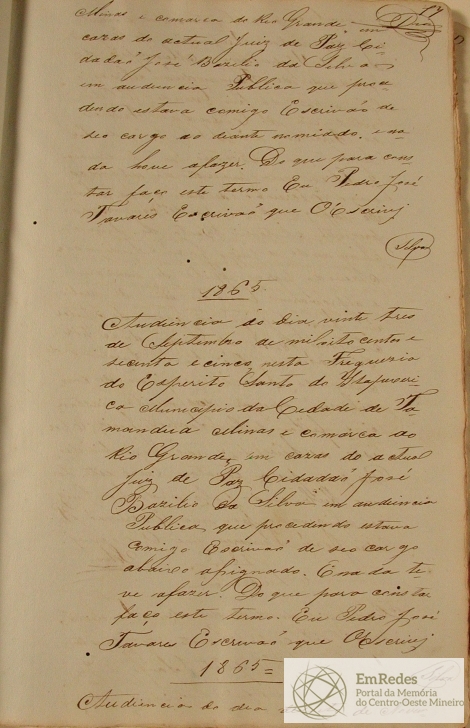 Minas e comarca do Rio Grande, em
cazas do actual Juiz de Paz Ci-
dadaõ José Bazilio da Silva
em audiencia Publica que proce-
dendo estava comigo Escrivaõ de
seo cargo ao deante nomiado. e na-
da houve afazer. Do que para cons-
tar faço este termo Eu Pedro José
Tavares Escrivaõ que O'Escrivj
Silva
1865
Audiencia do dia vinte tres
de Septembro de mil oito centos e
secenta e cinco, nesta Freguezia
do Esperito Santo do Itapeceri
ca Municipio da Cidade de Ta-
manduá Minas e comarca do
Rio Grande, em cazas do actual
Juiz de Paz Cidadaõ José
Bazilio da Silva em audiencia
Publica, que procedendo estava
comigo Escrivaõ de seo cargo
abaixo assignado. Enada te-
ve afazer. Do que para constar
faço este termo. Eu Pedro José
Tavares Escrivaõ que O'Escrivj
1865=
Audiencia do dia
EmRedes
Portal da Memória
do Centro-Oeste Mineiro